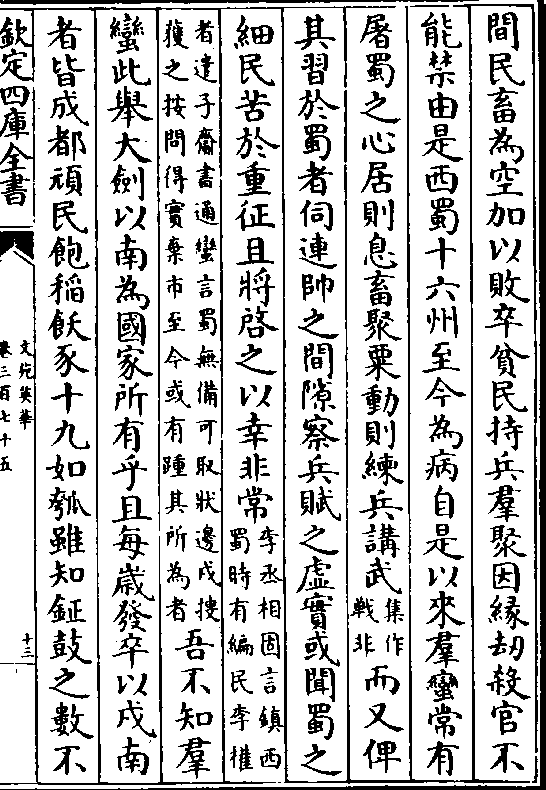 間民畜為空加以敗卒貧民持兵羣聚因緣刼殺官不
能禁由是西蜀十六州至今為病自是以來羣蠻常有
屠蜀之心居則息畜聚粟動則練兵講武集作戰非而又俾
其習於蜀者伺連帥之間隙察兵賦之虛實或聞蜀之
細民苦於重征且將啓之以幸非常李丞相固言鎮西蜀時有編民李權
者遣子齎書通蠻言蜀無備可取狀邊戍捜獲之按問得實棄市至今或有踵其所為者吾不知羣
蠻此舉大劍以南為國家所有乎且每歲發卒以戍南
者皆成都頑民飽稻飫豕十九如瓠雖知鉦鼓之數不
欽定四庫全書
文苑英華
卷三百七十五
十三